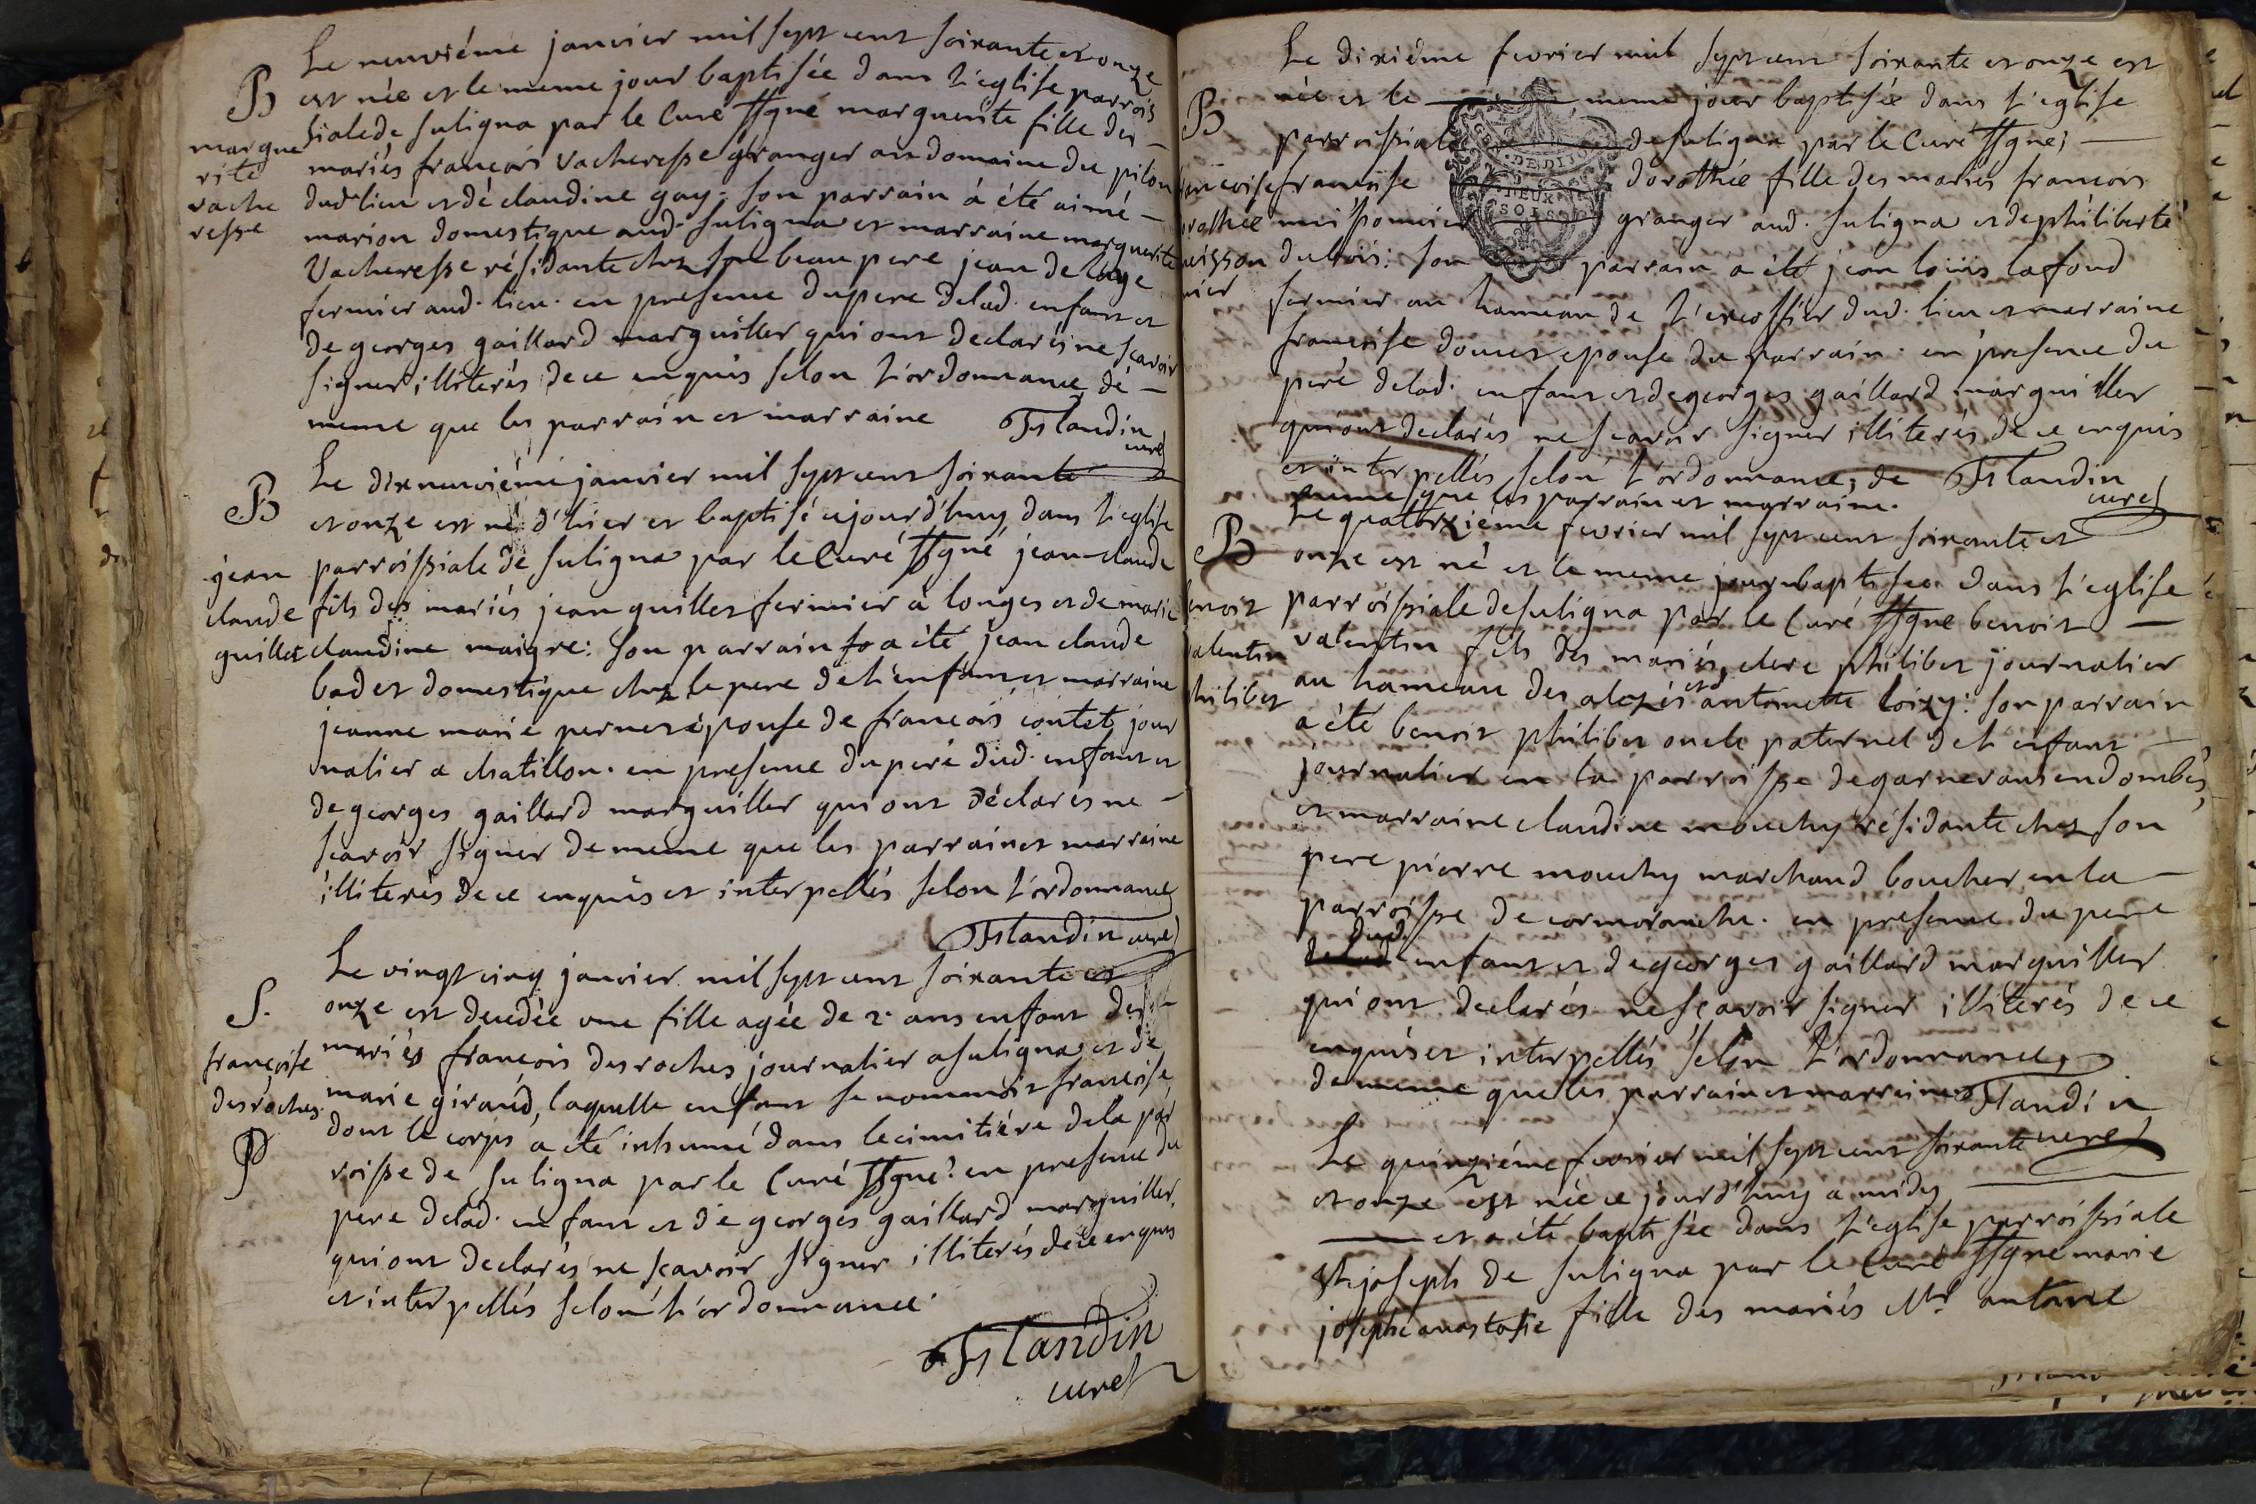 Le neuviéme janvier mil sept cent soixante et onze
B est née et le meme jour baptisée dans l'eglise parrois
siale de suligna par le Curé ssgné marguerite fille des
margue
rite
vache
resse
mariés françois Vacheresse granger au domaine du pilon
dud. lieu et dé claudine gay: son parrain á été aimé
marion domestique aud. suligna et marraine marguerite
Vacheresse résidante chez son beau pere jean delage
fermier aud. lieu. en presence du pere delad. enfant et
de georges gaillard marguiller qui ont declarés ne scavoir
signer illiterés de ce enquis selon l'ordonnance, de
meme que les parrain et marraine Flandin
curé
Le dixneuviéme janvier mil sept cent soixante
B et onze est né d'hier et baptisé cejourd'huy dans l'eglise
parroissiale de suligna par le Curé ssgné jean-claude
jean
claude
guillet
fils des mariés jean guillet fermier á longes et de marie
claudine maigre: son parrain a été jean claude
badet domestique chez le pere de l'enfant et marraine
jeanne marie pernet épouse de françois contet jour
nalier a chatillon. en presence du peré dud. enfant et
de georges gaillard marguiller qui ont déclarés ne
scavoir signer de meme que les parrain et marraine
illiterés de ce enquis et interpellés selon l'ordonnance
Flandin curé
Le vingt cinq janvier mil sept cent soixante et
S. onze est decedée une fille agée de 2. ans enfant des
françoise
desroches
P
mariés françois desroches journalier a suligna et de
marie giraud, laquelle enfant se nommoit francoise
dont le corps a été inhumé dans le cimitiére dela par
roisse de suligna par le Curé ssgné: en presence du
pere delad. enfant et de georges gaillard marguiller
qui ont declarés ne scavoir signer illiterés de ce enquis
et interpellés selon l'ordonnance.
Flandin
curé
Le dixiéme fevrier mil sept cent soixante et onze est
B née et le meme jour baptisée dans l'eglise
parroissiale de suligna par le Curé ssgné;
francoise dorothée fille des mariés francois
granger aud. suligna et de philiberte
dubois: son parrain a été jean loüis lafond
fermier au hameau de dud. lieu et marraine
francoise doucet epouse du parrain. en presence du
peré delad. enfant et de georges gaillard marguiller
qui ont declarés ne scavoir signer illiterés de ce enquis
et interpellés selon l'ordonnance, de Flandin
meme que les parrain et marraine. curé
Le quatorziéme fevrier mil sept cent soixante et
B onze est né et le meme jour baptisée dans l'eglise
enoit
valentin
philibet
parroissiale de suligna par le Curé ssgné benoit
valentin fils des mariés, clere philibet journalier
au hameau des alezés et antoinette loizy: son parrain
a été benoit philibet oncle paternel de l'enfant
journalier en la parroisse de garnerans en dombes,
et marraine claudine mouchy résidante chez son
pere pierre mouchy marchand boucher en la
parroisse de cormoranche. en presence du pere
dud.
enfant et de georges gaillard marguiller
qui ont declarés ne scavoir signer illiterés de ce
enquis et interpellés selon l'ordonnance,
de meme que les parrain et marraine Flandin
curé
Le quinziéme fevrier mil sept cent soixante
et onze est née ce jourd'huy a midy
et a été baptisée dans l'eglise parroissiale
St joseph de suligna par le Curé ssgné marie
josephe anastasie fille des mariés Mr. antoine